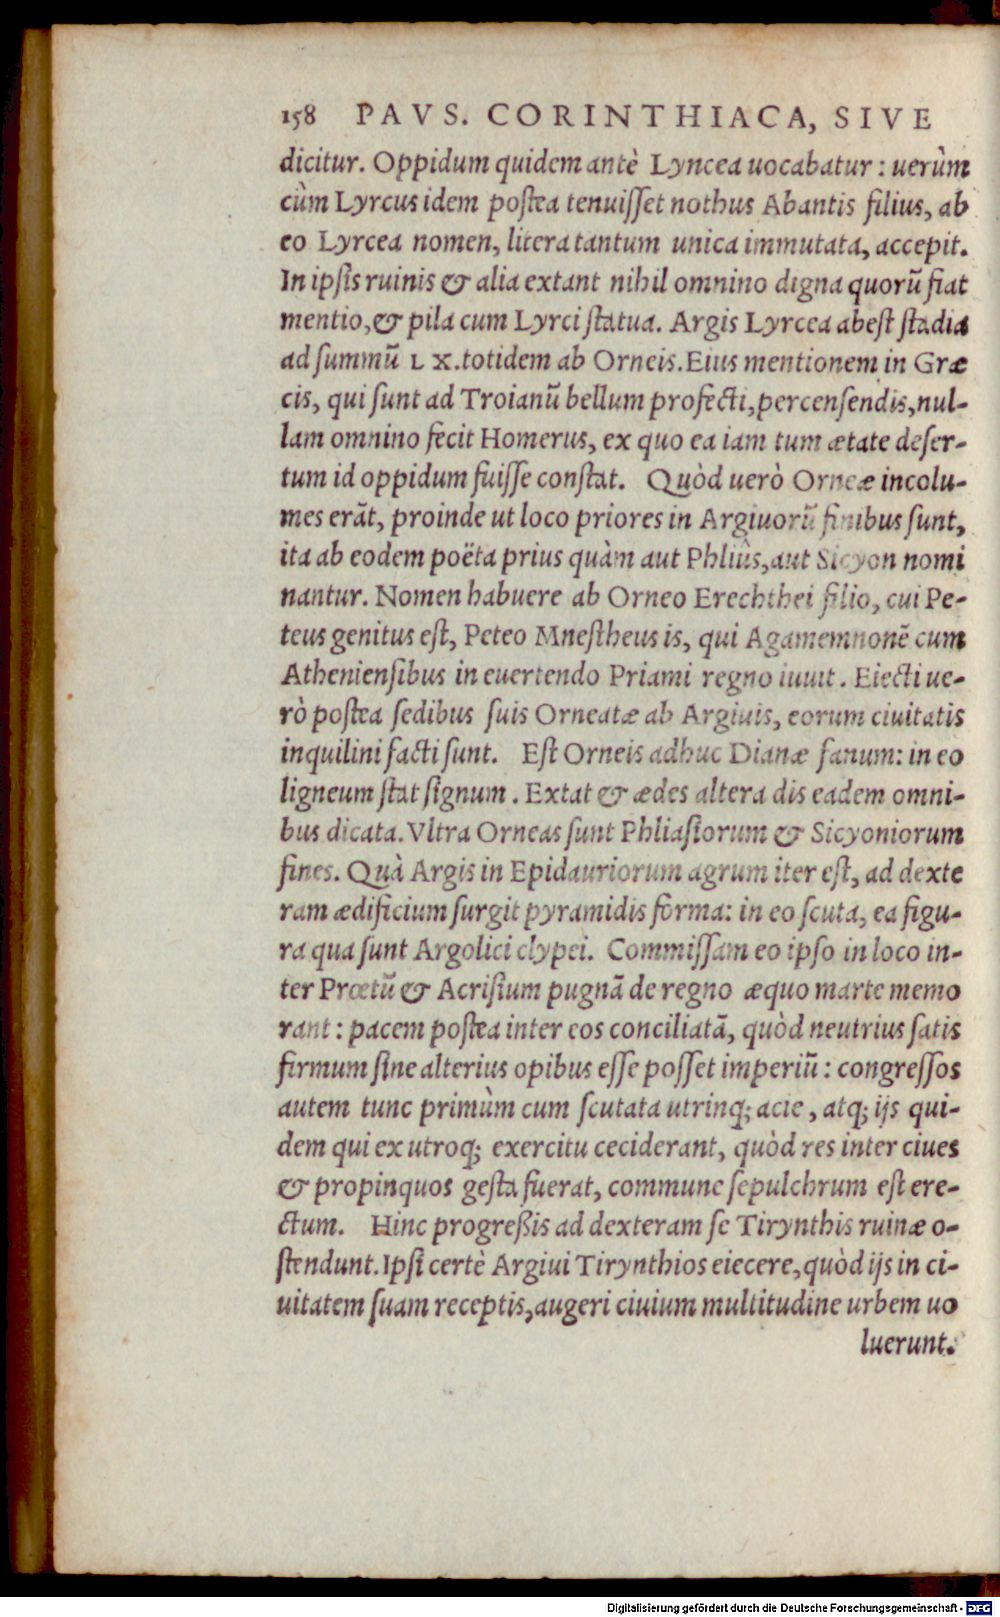 158 PAVS. CORINTHIACA, SIVE
dicitur. Oppidum quidem antè Lyncea uocabatur : uerùm
cùm Lyrcus idem postea tenuisset nothus Abantis filius, ab
eo Lyrcea nomen, litera tantum unica immutata, accepit.
In ipsis ruinis & alia extant nihil omnino digna quorũ fiat
mentio, & pila cum Lyrci statua. Argis Lyrcea abest stadia
ad summũ L X. totidem ab Orneis. Eius mentionem in Græ
cis, qui sunt ad Troianũ bellum profecti, percensendis, nul-
lam omnino fecit Homerus, ex quo ea iam tum ætate deser-
tum id oppidum fuisse constat. Quòd uerò Orneæ incolu-
mes erãt, proinde ut loco priores in Argiuorũ finibus sunt,
ita ab eodem poëta prius quàm aut Phliûs, aut Sicyon nomi
nantur. Nomen habuere ab Orneo Erechthei filio, cui Pe-
teus genitus est, Peteo Mnestheus is, qui Agamemnonẽ cum
Atheniensibus in euertendo Priami regno iuuit. Eiecti ue-
rò postea sedibus suis Orneatæ ab Argiuis, eorum ciuitatis
inquilini facti sunt. Est Orneis adhuc Dianæ fanum: in eo
ligneum stat signum. Extat & ædes altera dis eadem omni-
bus dicata. Vltra Orneas sunt Phliasiorum & Sicyoniorum
fines. Quà Argis in Epidauriorum agrum iter est, ad dexte
ram ædificium surgit pyramidis forma: in eo scuta, ea figu-
ra qua sunt Argolici clypei. Commissam eo ipso in loco in-
ter Prœtũ & Acrisium pugnã de regno æquo marte memo
rant : pacem postea inter eos conciliatã, quòd neutrius satis
firmum sine alterius opibus esse posset imperiũ : congressos
autem tunc primùm cum scutata utrinq; acie, atq; ijs qui-
dem qui ex utroq; exercitu ceciderant, quòd res inter ciues
& propinquos gesta fuerat, commune sepulchrum est ere-
ctum. Hinc progreßis ad dexteram se Tirynthis ruinæ o-
stendunt. Ipsi certè Argiui Tirynthios eiecere, quòd ijs in ci-
uitatem suam receptis, augeri ciuium multitudine urbem uo
luerunt.
Digitalisierung gefördert durch die Deutsche Forschungsgemeinschaft - DFG